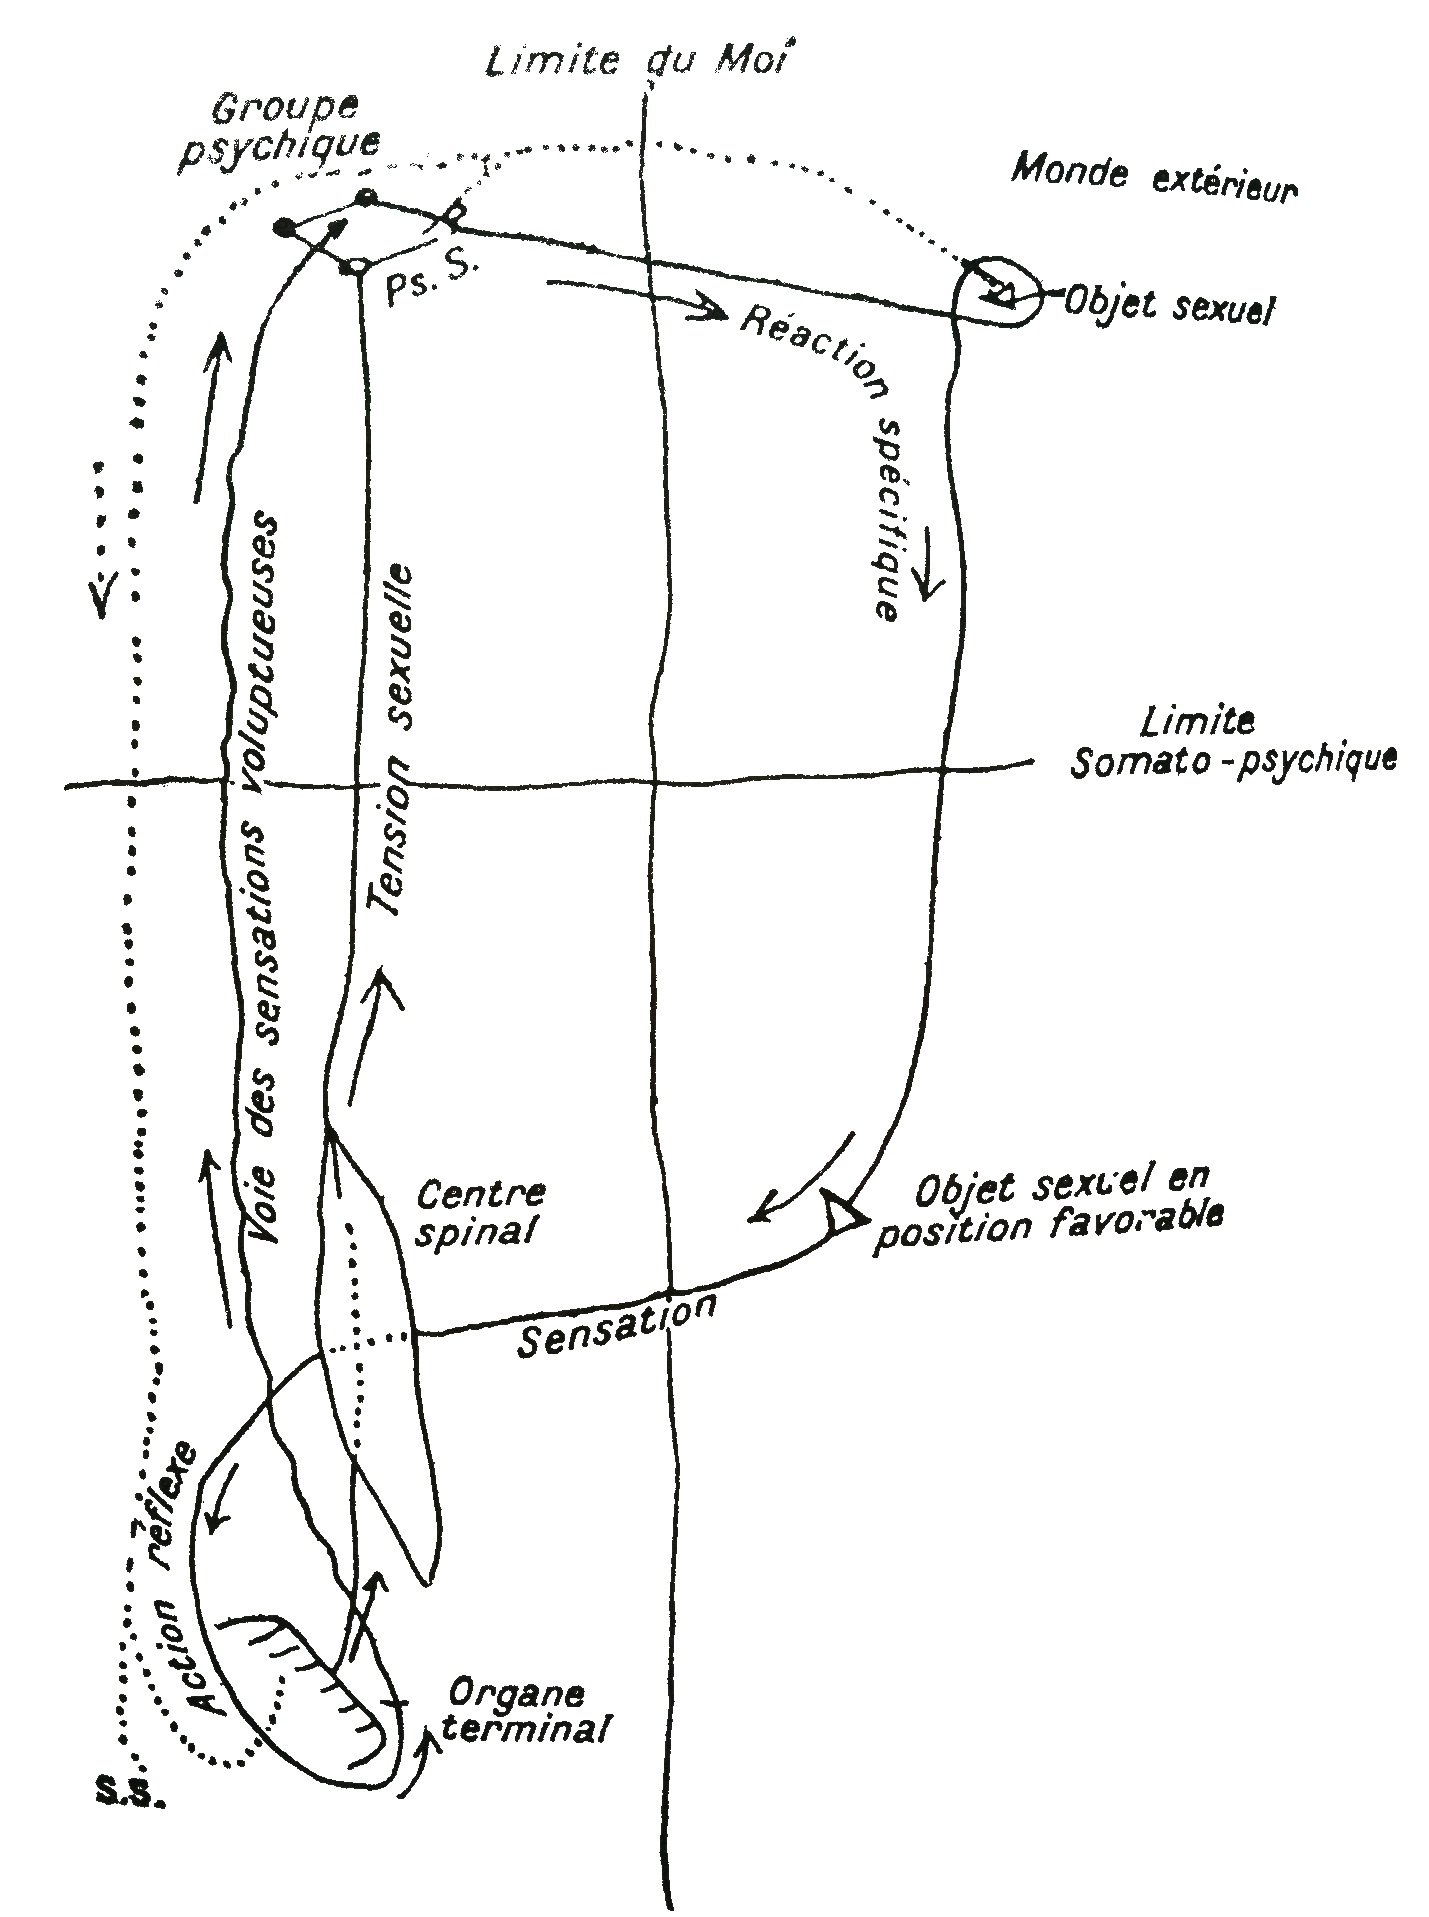 Limite du Moi
Groupe
psychique
Monde extérieur
Ps. S.
Objet sexuel
Réaction spécifique
Voie des sensations voluptueuses
Tension sexuelle
Limite
Somato-psychique
Centre
spinal
Objet sexuel en
position favorable
Sensation
Action réflexe
Organe
terminal
S.S.